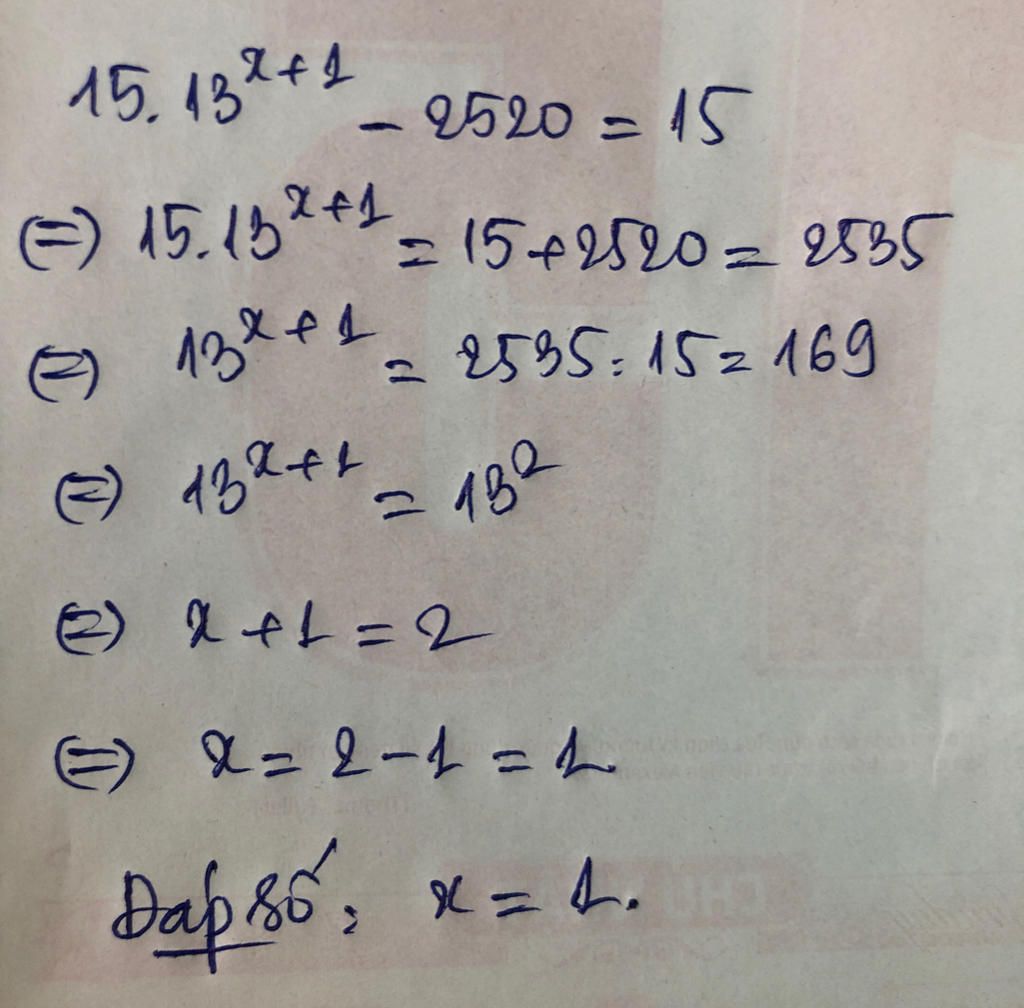 15.13^{x+1} - 2520 = 15
(=) 15.13^{x+1} = 15+2520 = 2535
(=) 13^{x+1} = 2535:15 = 169
(=) 13^{x+1} = 13^2
(=) x+1 = 2
(=) x = 2-1 = 1.
Đáp số: x = 1.